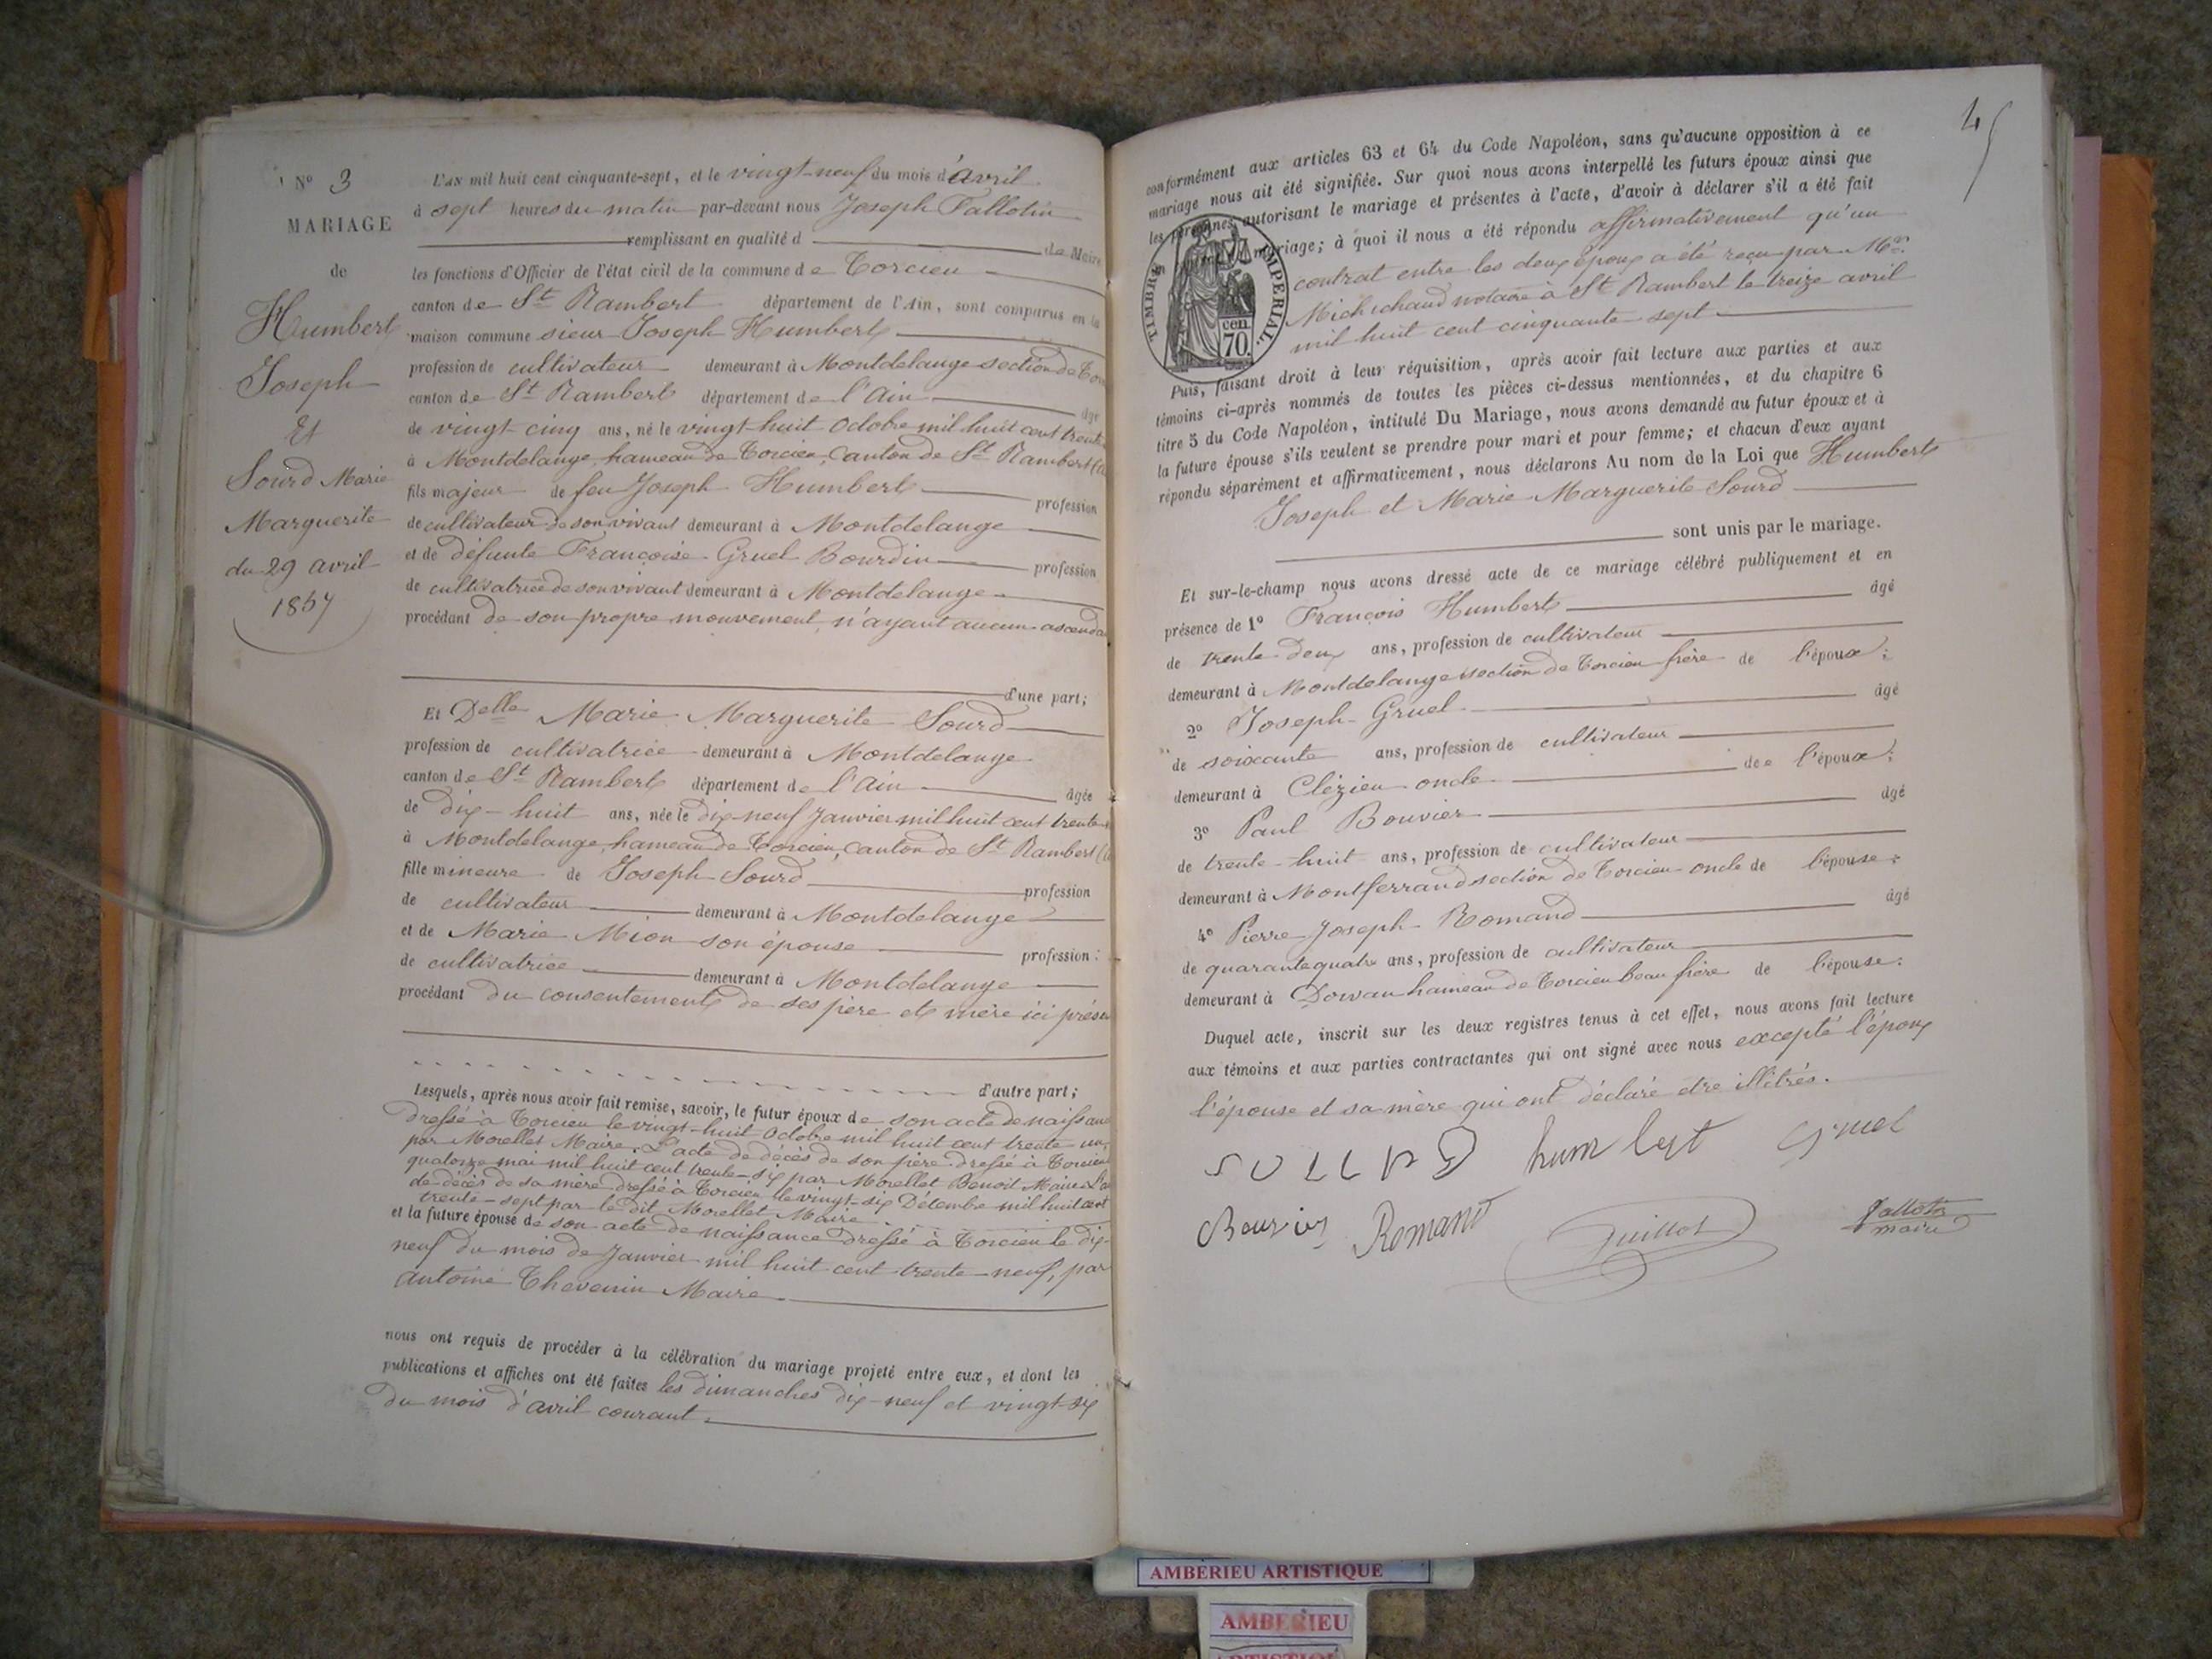 N° 3
MARIAGE
de
Humbert
Joseph
Et
Sourd Marie
Marguerite
du 29 avril
1857
L'an mil huit cent cinquante-sept, et le vingt-neuf du mois d'avril
à sept heures du matin par-devant nous Joseph Tallotin
remplissant en qualité d de Maire
les fonctions d'Officier de l'état civil de la commune de Torcieu
canton de St Rambert département de l'Ain, sont comparus en la
maison commune sieur Joseph Humbert
profession de cultivateur demeurant à Montdelange section de
canton de St Rambert département de l'Ain âgé
de vingt-cinq ans, né le vingt-huit Octobre mil huit cent trente
à Montdelange, hameau de Torcieu, Canton de St Rambert
fils majeur de feu Joseph Humbert profession
de cultivateur de son vivant demeurant à Montdelange
et de défunte Françoise Gruel Bourdin profession
de cultivatrice de son vivant demeurant à Montdelange
procédant de son propre mouvement n'ayant aucun
d'une part;
Et Delle Marie Marguerite Sourd
profession de cultivatrice demeurant à Montdelange
canton de St Rambert département de l'Ain âgée
de dix-huit ans, née le dix-neuf Janvier mil huit cent trente
à Montdelange, hameau de Torcieu, Canton de St Rambert
fille mineure de Joseph Sourd profession
de cultivateur demeurant à Montdelange
et de Marie Mion son épouse profession:
de cultivatrice demeurant à Montdelange
procédant du consentement de ses père et mère ici
d'autre part;
Lesquels, après nous avoir fait remise, savoir, le futur époux de son acte de naissance
dressé à Torcieu le vingt-huit Octobre mil huit cent trente un
par Morellet Maire. L'acte de décès de son père dressé à Torcieu
quatorze mai mil huit cent trente-six par Morellet Benoit Maire
de décès de sa mère dressé à Torcieu le vingt-six Décembre mil huit cent
trente-sept par le dit Morellet Maire
et la future épouse de son acte de naissance dressé à Torcieu le dix-
neuf du mois de Janvier mil huit cent trente-neuf, par
Antoine Thevenin Maire
nous ont requis de procéder à la célébration du mariage projeté entre eux, et dont les
publications et affiches ont été faites les dimanches dix-neuf et vingt-six
du mois d'avril courant.
45
conformément aux articles 63 et 64 du Code Napoléon, sans qu'aucune opposition à ce
mariage nous ait été signifiée. Sur quoi nous avons interpellé les futurs époux ainsi que
les personnes autorisant le mariage et présentes à l'acte, d'avoir à déclarer s'il a été fait
mariage; à quoi il nous a été répondu affirmativement qu'un
contrat entre les deux époux a été reçu par Me
Michichaud notaire à St Rambert le treize avril
mil huit cent cinquante sept
TIMBRE IMPERIAL.
cen. 70.
Puis, faisant droit à leur réquisition, après avoir fait lecture aux parties et aux
témoins ci-après nommés de toutes les pièces ci-dessus mentionnées, et du chapitre 6
titre 5 du Code Napoléon, intitulé Du Mariage, nous avons demandé au futur époux et à
la future épouse s'ils veulent se prendre pour mari et pour femme; et chacun d'eux ayant
répondu séparément et affirmativement, nous déclarons Au nom de la Loi que Humbert
Joseph et Marie Marguerite Sourd
sont unis par le mariage.
Et sur-le-champ nous avons dressé acte de ce mariage célébré publiquement et en
présence de 1° François Humbert âgé
de trente deux ans, profession de cultivateur
demeurant à Montdelange section de Torcieu frère de l'époux;
2° Joseph Gruel âgé
de soixante ans, profession de cultivateur
demeurant à Clézieu oncle de l'époux;
3° Paul Bouvier âgé
de trente-huit ans, profession de cultivateur
demeurant à Montferrand section de Torcieu oncle de l'épouse;
4° Pierre Joseph Romand âgé
de quarante quatre ans, profession de cultivateur
demeurant à Dorvan hameau de Torcieu beau frère de l'épouse.
Duquel acte, inscrit sur les deux registres tenus à cet effet, nous avons fait lecture
aux témoins et aux parties contractantes qui ont signé avec nous excepté l'époux
l'épouse et sa mère qui ont déclaré etre illétrés.
humbert Gruel
Bouvier Romand Guillot Tallotin
maire
AMBERIEU ARTISTIQUE
AMBERIEU
ARTISTIQUE